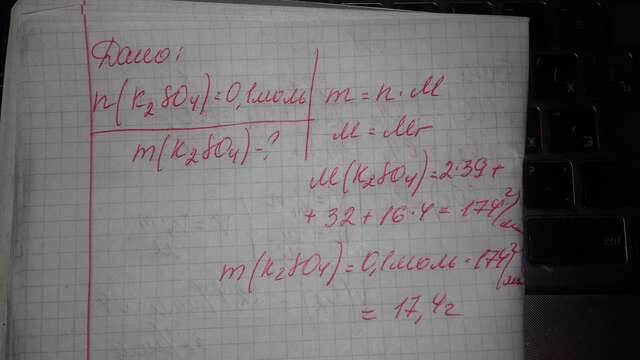 Дано:
n(K2SO4)=0,1моль
m = n · M
m(K2SO4)-?
M = Mr
M(K2SO4)=2·39+
+ 32 + 16·4 = 174 г/моль
m(K2SO4)=0,1моль · 174 г/моль
= 17,4г